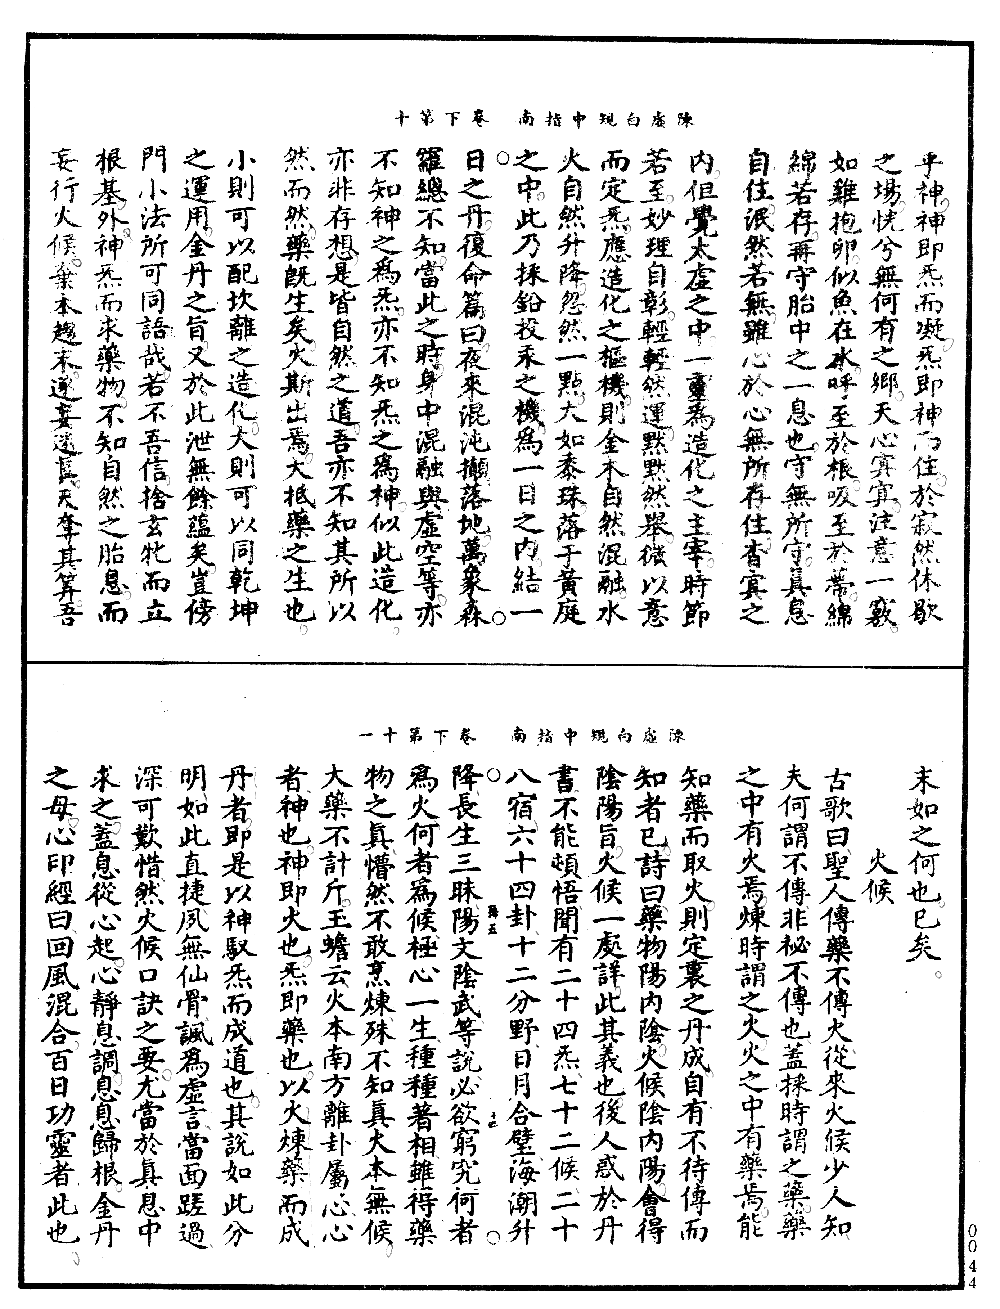 陳虛白規中指南　卷下第十
乎神神即炁而凝炁即神而住於寂然休歇
之場恍兮無何有之鄉天心冥冥注意一竅
如雞抱卵似魚在水呼至於根吸至於蒂綿
綿若存再守胎中之一息也守無所守真息
自住泯然若無雖心於心無所存住杳冥之
內但覺太虛之中一靈爲造化之主宰時節
若至妙理自彰輕輕然運默默然舉微以意
而定炁應造化之樞機則金木自然混融水
火自然升降忽然一點大如黍珠落于黃庭
之中此乃採鉛投汞之機爲一日之內結一
日之丹復命篇曰夜來混沌攧落地萬象森
羅總不知當此之時身中混融與虛空等亦
不知神之爲炁亦不知炁之爲神似此造化
亦非存想是皆自然之道吾亦不知其所以
然而然藥既生矣火斯出焉大抵藥之生也
小則可以配坎離之造化大則可以同乾坤
之運用金丹之旨又於此泄無餘蘊矣豈傍
門小法所可同語哉若不吾信捨玄牝而立
根基外神炁而求藥物不知自然之胎息而
妄行火候棄本趨末逐妄迷眞天奪其筭吾
陳虛白規中指南　卷下第十一
末如之何也已矣
火候
古歌曰聖人傳藥不傳火從來火候少人知
夫何謂不傳非祕不傳也蓋採時謂之藥藥
之中有火焉煉時謂之火火之中有藥焉能
知藥而取火則定裏之丹成自有不待傳而
知者已詩曰藥物陽內陰火候陰內陽會得
陰陽旨火候一處詳此其義也後人惑於丹
書不能頓悟聞有二十四炁七十二候二十
八宿六十四卦十二分野日月合璧海潮升
降長生三昧陽文陰武等說必欲窮究何者
爲火何者爲候極心一生種種著相雖得藥
物之真懵然不敢烹煉殊不知真火本無候
大藥不計斤玉蟾云火本南方離卦屬心心
者神也神即火也炁即藥也以火煉藥而成
丹者即是以神馭炁而成道也其說如此分
明如此直捷夙無仙骨諷爲虛言當面蹉過
深可歎惜然火候口訣之要尤當於真息中
求之蓋息從心起心靜息調息息歸根金丹
之母心印經曰回風混合百日功靈者此也
0044